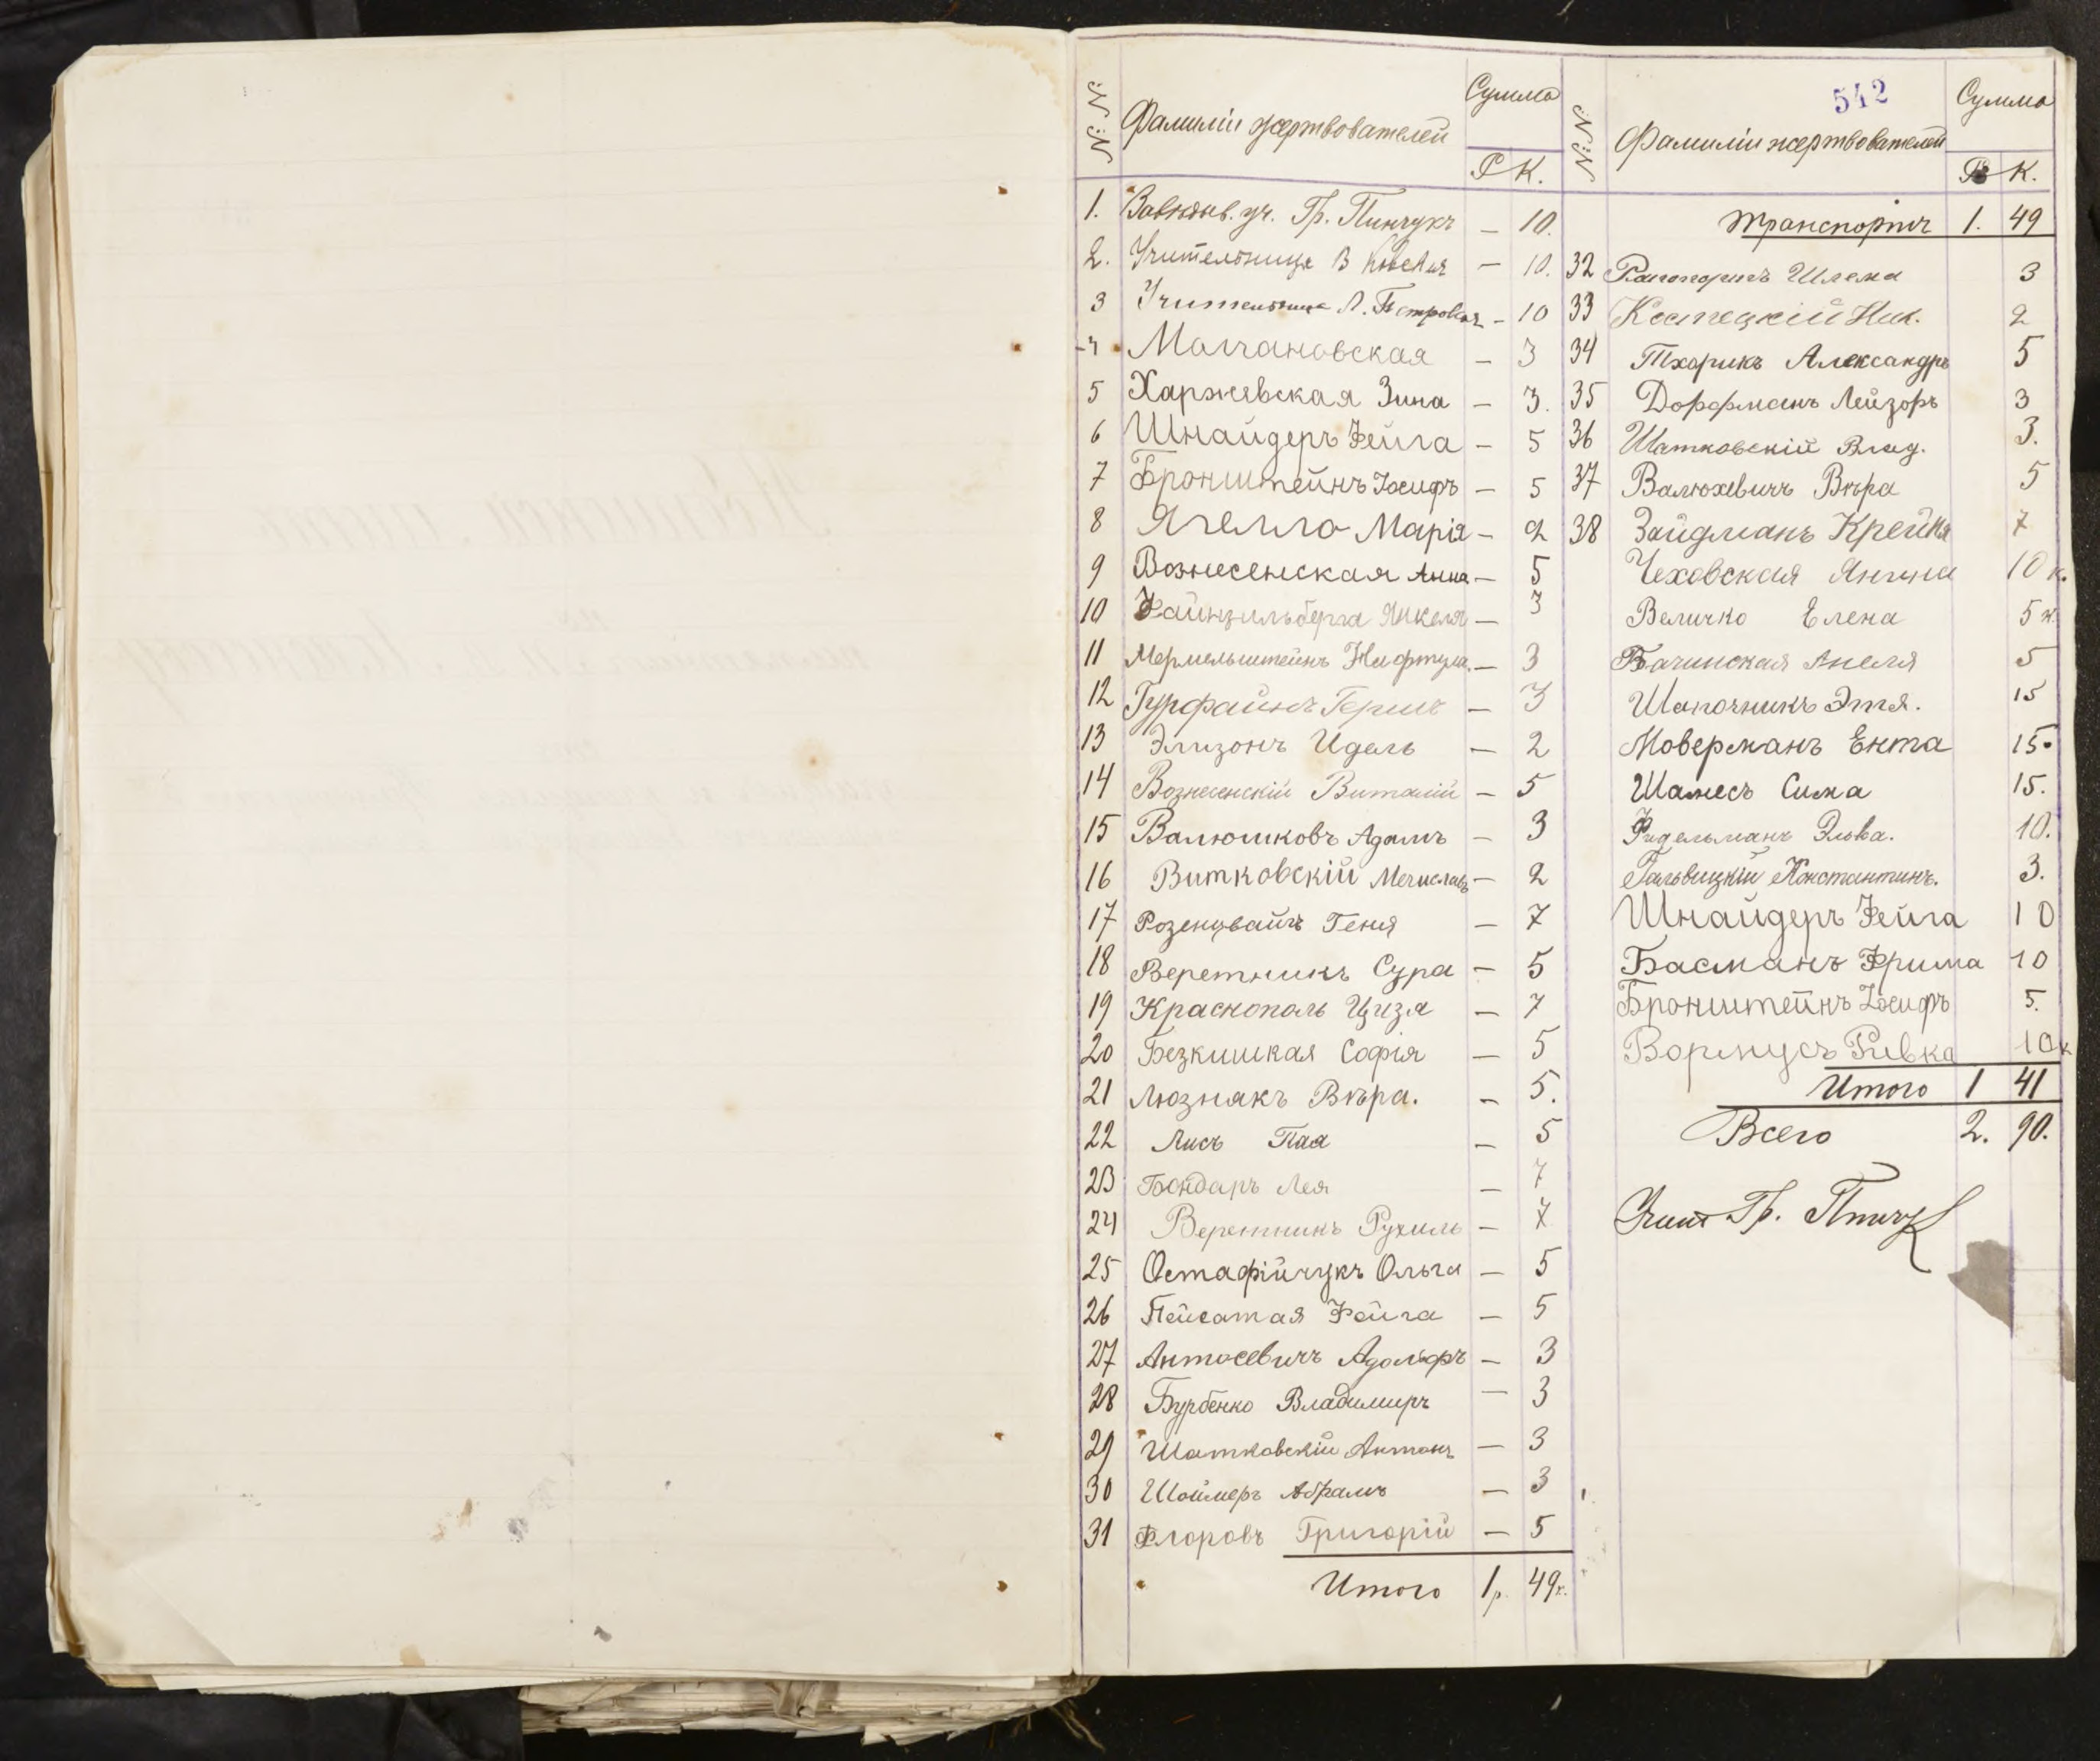 542
№№ Фамиліи жертвователей Сумма
Р К.
1. Завѣдыв. уч. Гр. Пинчукъ — 10.
2. Учительница В — 10.
3 Учительница Л. Петровская — 10
4 Молчановская — 3
5 Харжевская Зина — 3.
6 Шнайдеръ Фейга — 5
7 Бронштейнъ Іосифъ — 5
8 Ягелло Марія — 2
9 Вознесенская Анна — 5
10 Файнзильберга Янкеля — 3
11 Мермельштейнъ Нафтула — 3
12 Гурфайнъ Герш — 3
13 Элизонъ Идель — 2
14 Вознесенскій Виталій — 5
15 Валюшковъ Адамъ — 3
16 Витковскій Мечиславъ — 2
17 Розенцвайгъ Геня — 7
18 Веретникъ Сура — 5
19 Краснополь Цизя — 7
20 Безкишкая Софія — 5
21 Люзнякъ Вѣра. — 5.
22 Лисъ Пая — 5
23 Бондаръ Лея — 7
24 Веретникъ Рухиль — 7
25 Остафійчукъ Ольга — 5
26 Пейсатая Фейга — 5
27 Антосевичъ Адольфъ — 3
28 Бурбенко Владимиръ — 3
29 Шатковскій Антонъ — 3
30 Шоймеръ Абрамъ — 3
31 Флоровъ Григорій — 5
Итого 1р. 49к.
№№ Фамиліи жертвователей Сумма
Р К.
Транспортъ 1. 49
32 Шлема 3
33 Костецкій Ник. 2
34 Тхорикъ Александръ 5
35 Дорфманъ Лейзоръ 3
36 Шатковскій Влад. 3.
37 Валюхевичъ Вѣра 5
38 Зайдманъ Крейня 7
Чеховская Янина 10 к.
Величко Елена 5 к.
Бачинская Анеля 5
Шапочникъ Этя. 15
Моверманъ Ента 15.
Шамесъ Сима 15.
Фидельманъ Эльва. 10.
Гальвицкій Константинъ. 3.
Шнайдеръ Фейга 10
Басманъ Фрима 10
Бронштейнъ Іосифъ 5.
Вормусъ Ривка 10к
Итого 1 41
Всего 2. 90.
Учит Гр. Пинчук